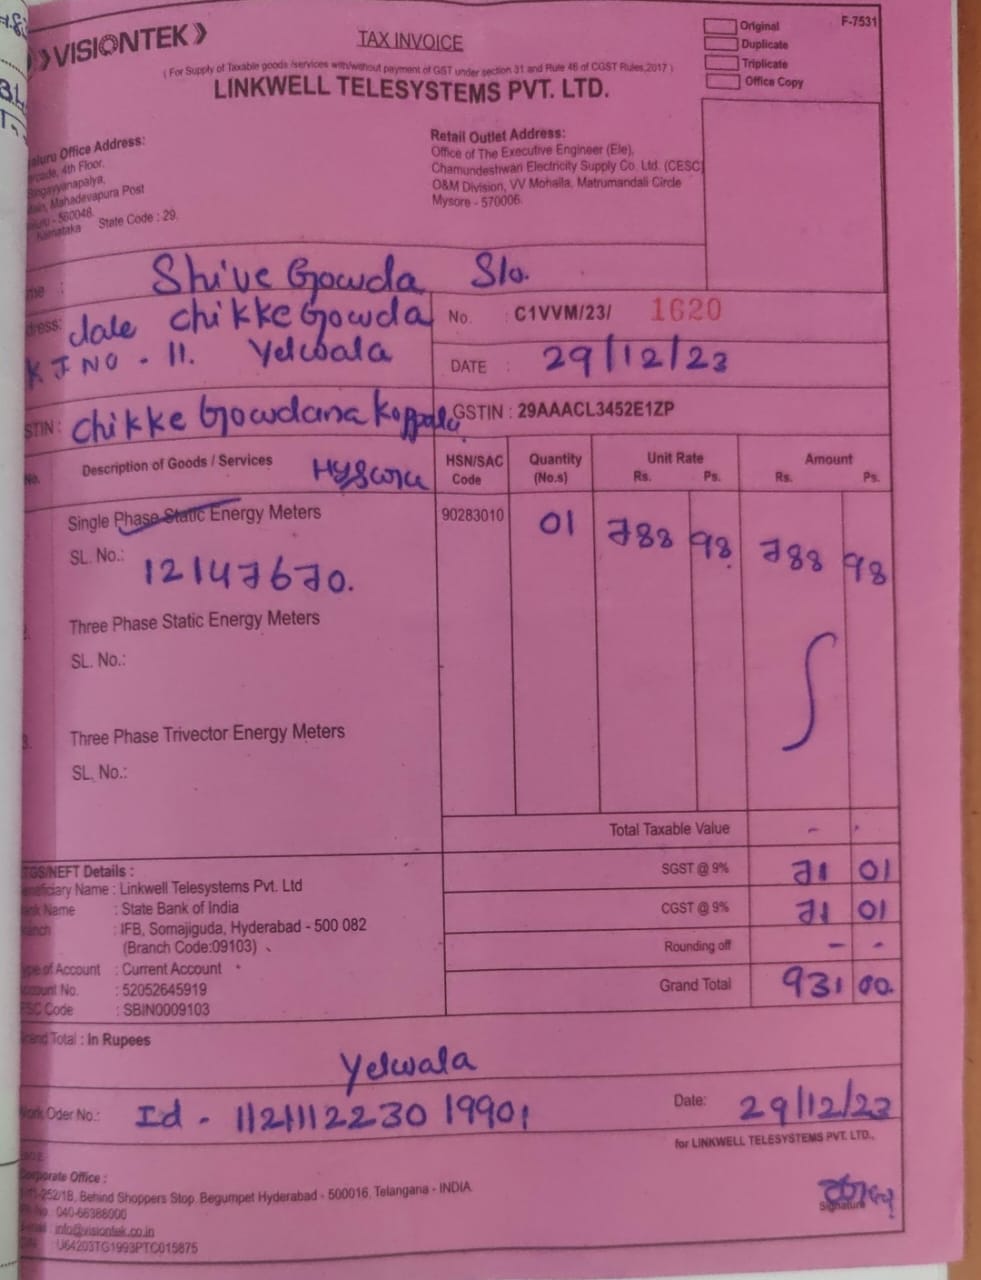 VISIONTEK
TAX INVOICE
Original
Duplicate
Triplicate
Office Copy
F-7531
( For Supply of Taxable goods /services with/without payment of GST under section 31 and Rule 46 of CGST Rules,2017 )
LINKWELL TELESYSTEMS PVT. LTD.
Office Address:
4th Floor,
Mahadevapura Post
560048.
Karnataka State Code : 29.
Retail Outlet Address:
Office of The Executive Engineer (Ele),
Chamundeshwari Electricity Supply Co. Ltd. (CESC)
O&M Division, VV Mohalla, Matrumandali Circle
Mysore - 570006.
Shive Gowda S/o.
date Chikke Gowda
No. : C1VVM/23/ 1620
K J NO - 11. Yelwala
DATE : 29/12/23
Chikke Gowdana Koppalu
GSTIN : 29AAACL3452E1ZP
Description of Goods / Services
HSN/SAC Code
Quantity (No.s)
Unit Rate Rs. Ps.
Amount Rs. Ps.
Single Phase Static Energy Meters 90283010 01 788 98 788 98
SL. No.: 12147670.
Three Phase Static Energy Meters
SL. No.:
Three Phase Trivector Energy Meters
SL. No.:
Total Taxable Value - -
SGST @ 9% 71 01
CGST @ 9% 71 01
Rounding off - -
Grand Total 931 00.
RTGS/NEFT Details :
Beneficiary Name : Linkwell Telesystems Pvt. Ltd
Bank Name : State Bank of India
Branch : IFB, Somajiguda, Hyderabad - 500 082
(Branch Code:09103)
Type of Account : Current Account
Account No. : 52052645919
IFSC Code : SBIN0009103
Grand Total : In Rupees
Yelwala
Work Oder No.: Id - 1121112230 19901
Date: 29/12/23
for LINKWELL TELESYSTEMS PVT. LTD.,
Corporate Office :
Behind Shoppers Stop, Begumpet Hyderabad - 500016, Telangana - INDIA
040-66388000
info@visiontek.co.in
U64203TG1993PTC015875
Signature